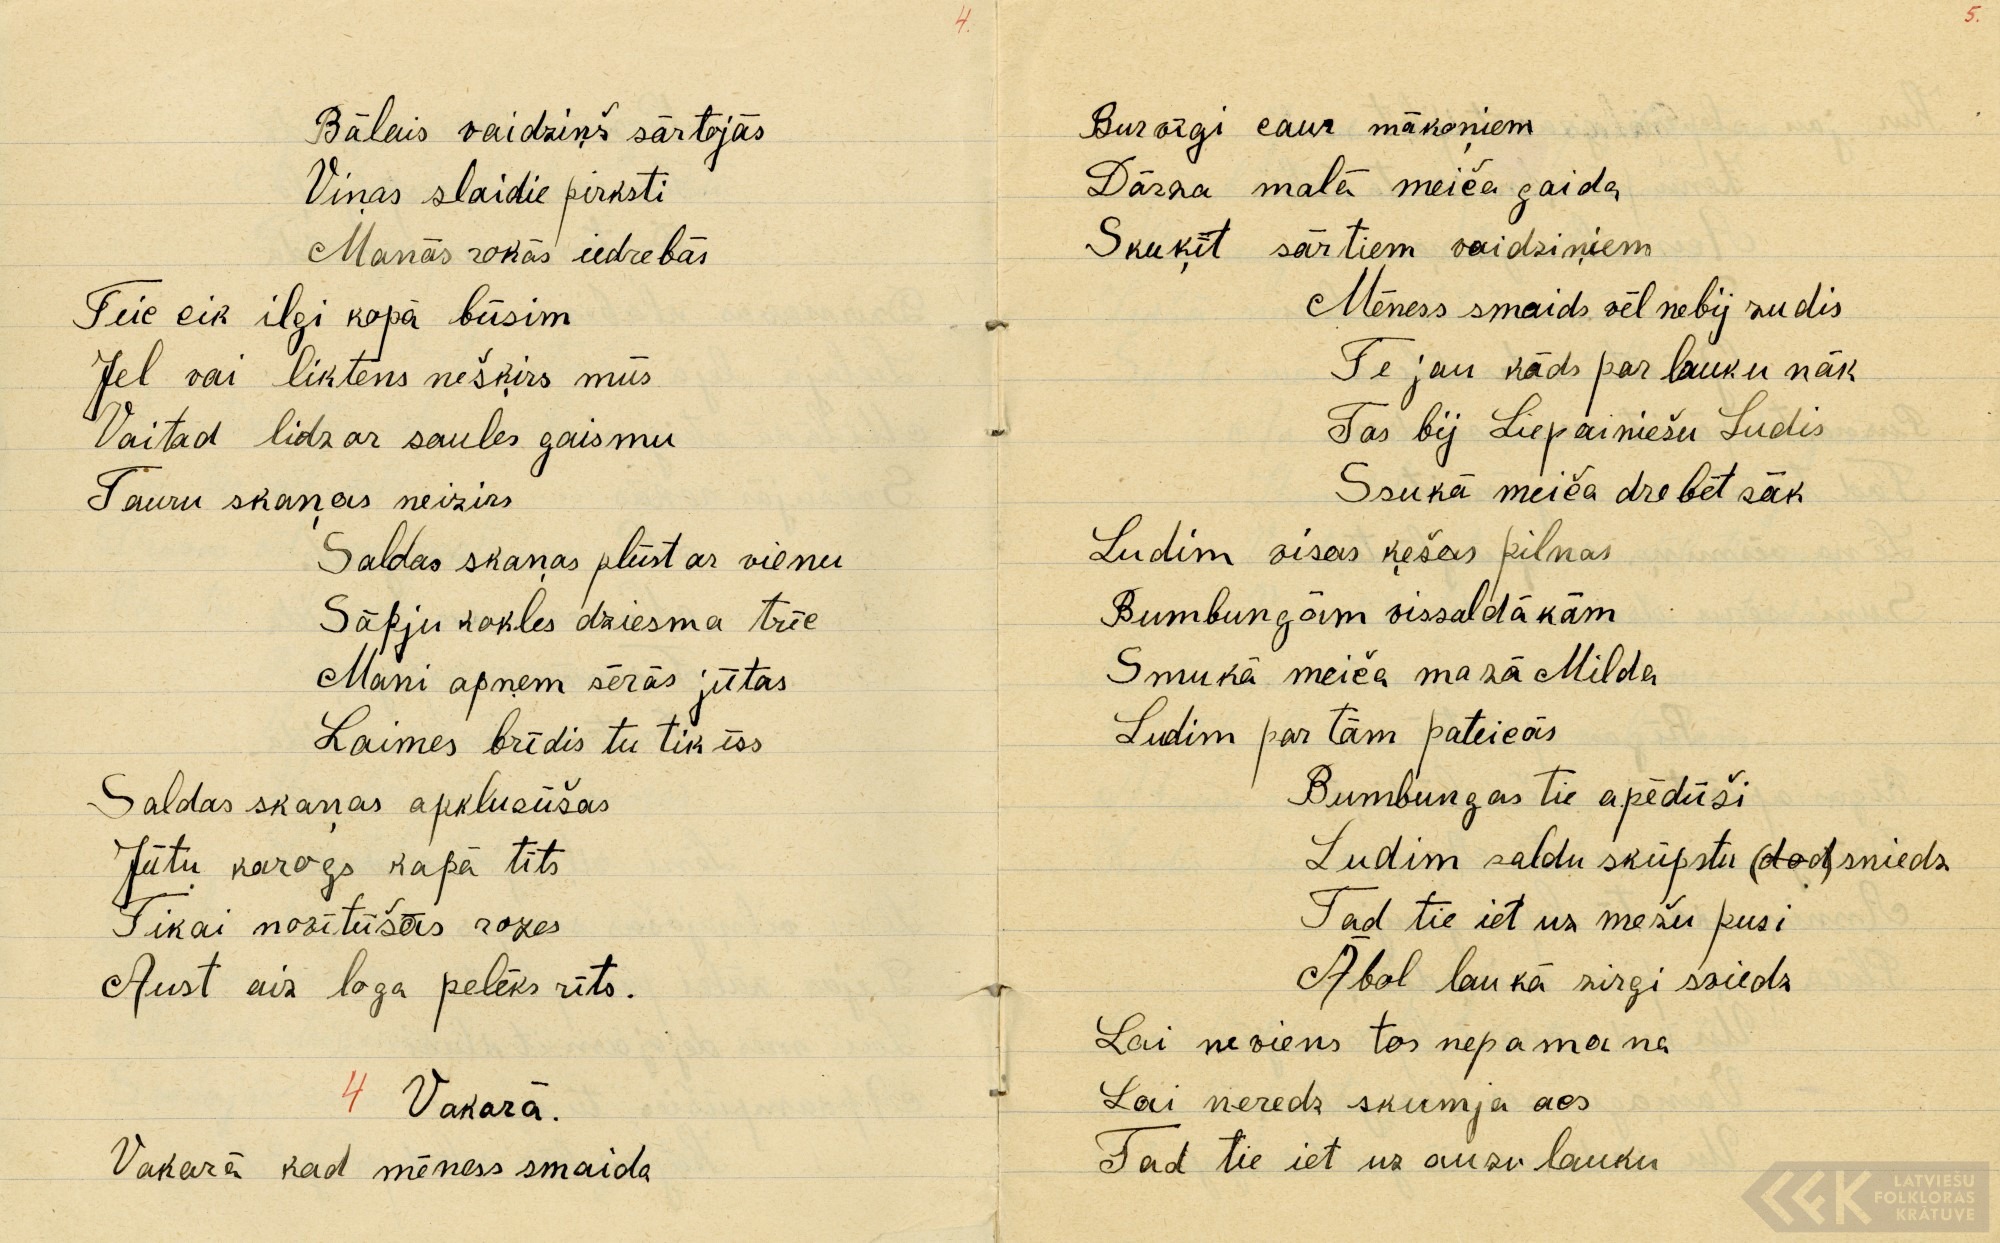 4.
Bālais vaidziņš sārtojās
Viņas slaidie pirksti
Manās rokās iedrebās
Teic cik ilgi kopā būsim
Jel vai liktens nešķirs mūs
Vaitad lidz ar saules gaismu
Tauru skaņas neizirs
Saldas skaņas plūst ar vienu
Sāpju kokles dziesma trīc
Mani apņem sērās jūtas
Laimes brīdis tu tik īss
Saldas skaņas apklusūšas
Jūtu karogs kapā tīts
Tikai novītūšas rozes
Aust aiz loga pelēks rīts.
4 Vakarā.
Vakarā kad mēness smaida
5.
Burvīgi caur mākoņiem
Dārza malā meiča gaida
Skuķīt sārtiem vaidziņiem
Mēness smaids vēl nebij zudis
Te jau kāds par lauku nāk
Tas bij Liepainiešu Ludis
Ssukā meiča drebēt sāk
Ludim visas ķešas pilnas
Bumbungām vissaldākām
Smukā meiča mazā Milda
Ludim par tām pateicās
Bumbungas tie apēdūši
Ludim saldu skūpstu (dod) sniedz
Tad tie iet uz mežu pusi
Ābol laukā zirgi sviedz
Lai neviens tos nepamana
Lai neredz skumja acs
Tad tie iet uz auzu lauku
LATVIEŠU
FOLKLORAS
KRĀTUVE